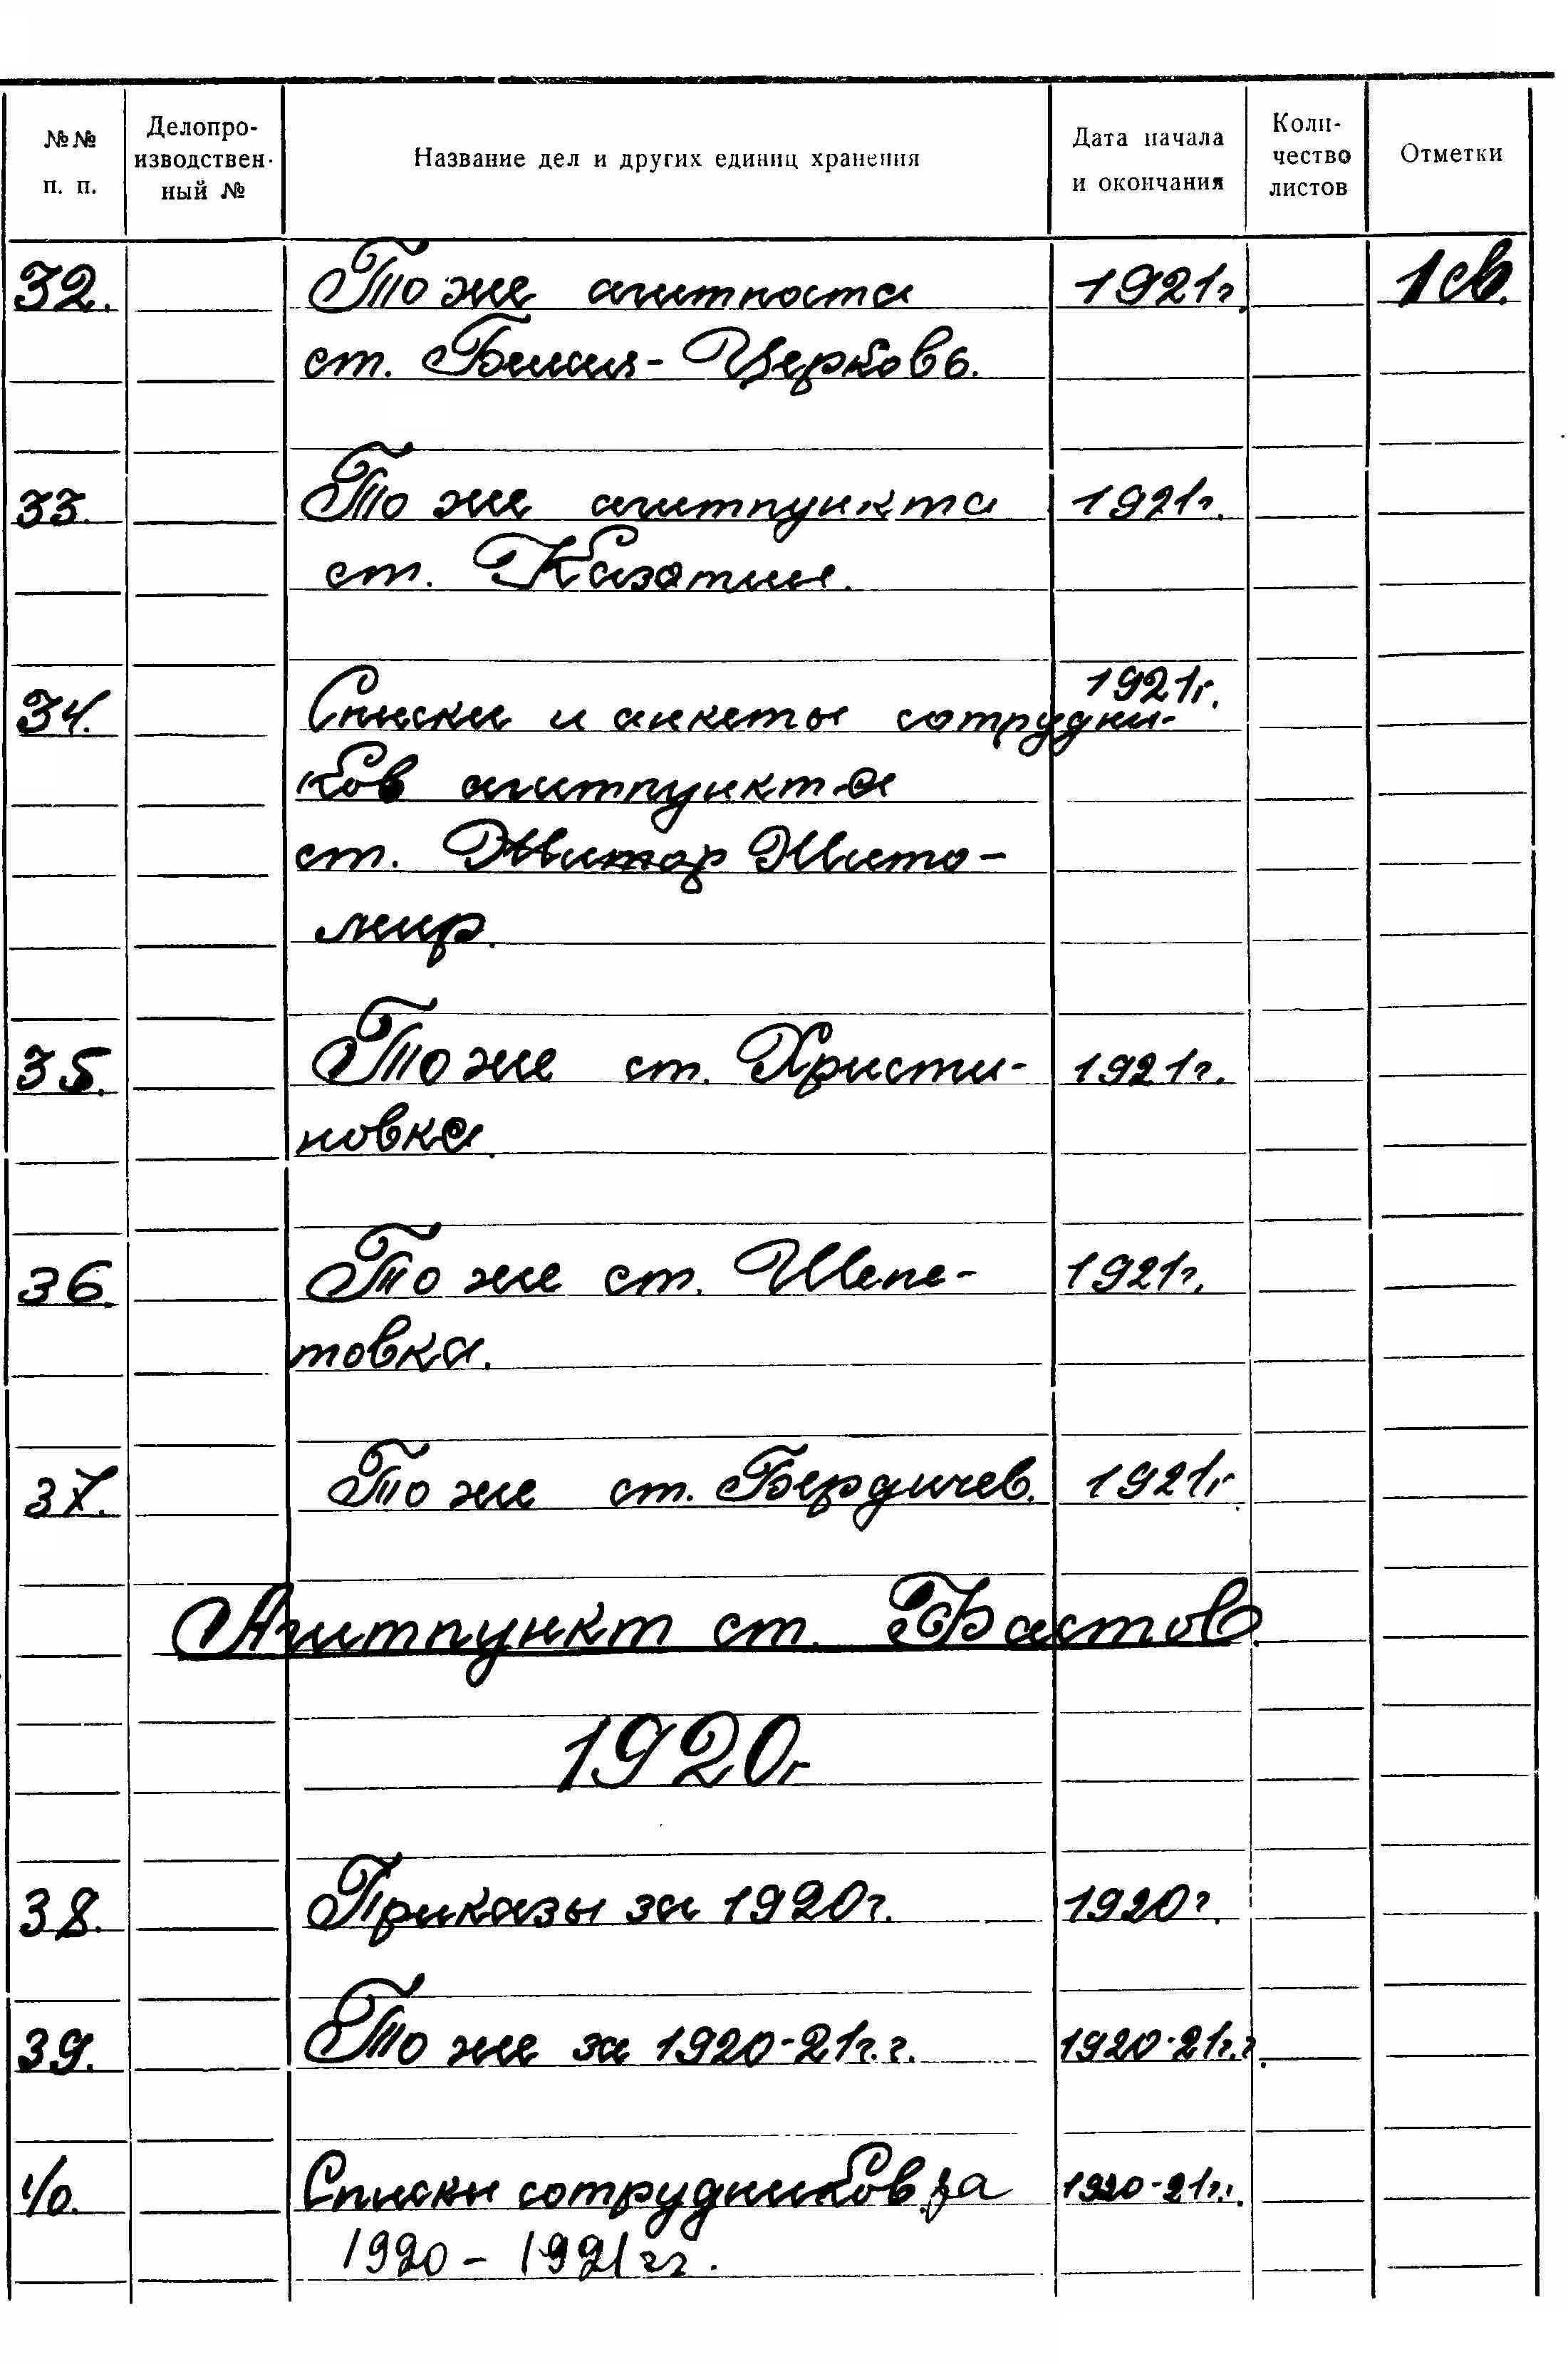 №№ п. п. Делопро-изводствен-ный № Название дел и других единиц хранения Дата начала и окончания Коли-чество листов Отметки
32. То же агитпоста 1921г. 1св.
ст. Белая-Церковь.
33. То же агитпункта 1921г.
ст. Казатин.
1921г.
34. Списки и анкеты сотрудни-
ков агитпункта
ст. Житомир Жито-
мир.
35. То же ст. Христи- 1921г.
новка.
36. То же ст. Шепе- 1921г.
товка.
37. То же ст. Бердичев. 1921г.
Агитпункт ст. Фастов.
1920г
38. Приказы за 1920г. 1920г.
39. То же за 1920-21г.г. 1920-21г.г.
40. Списки сотрудников за 1920-21г.г.
1920-1921гг.